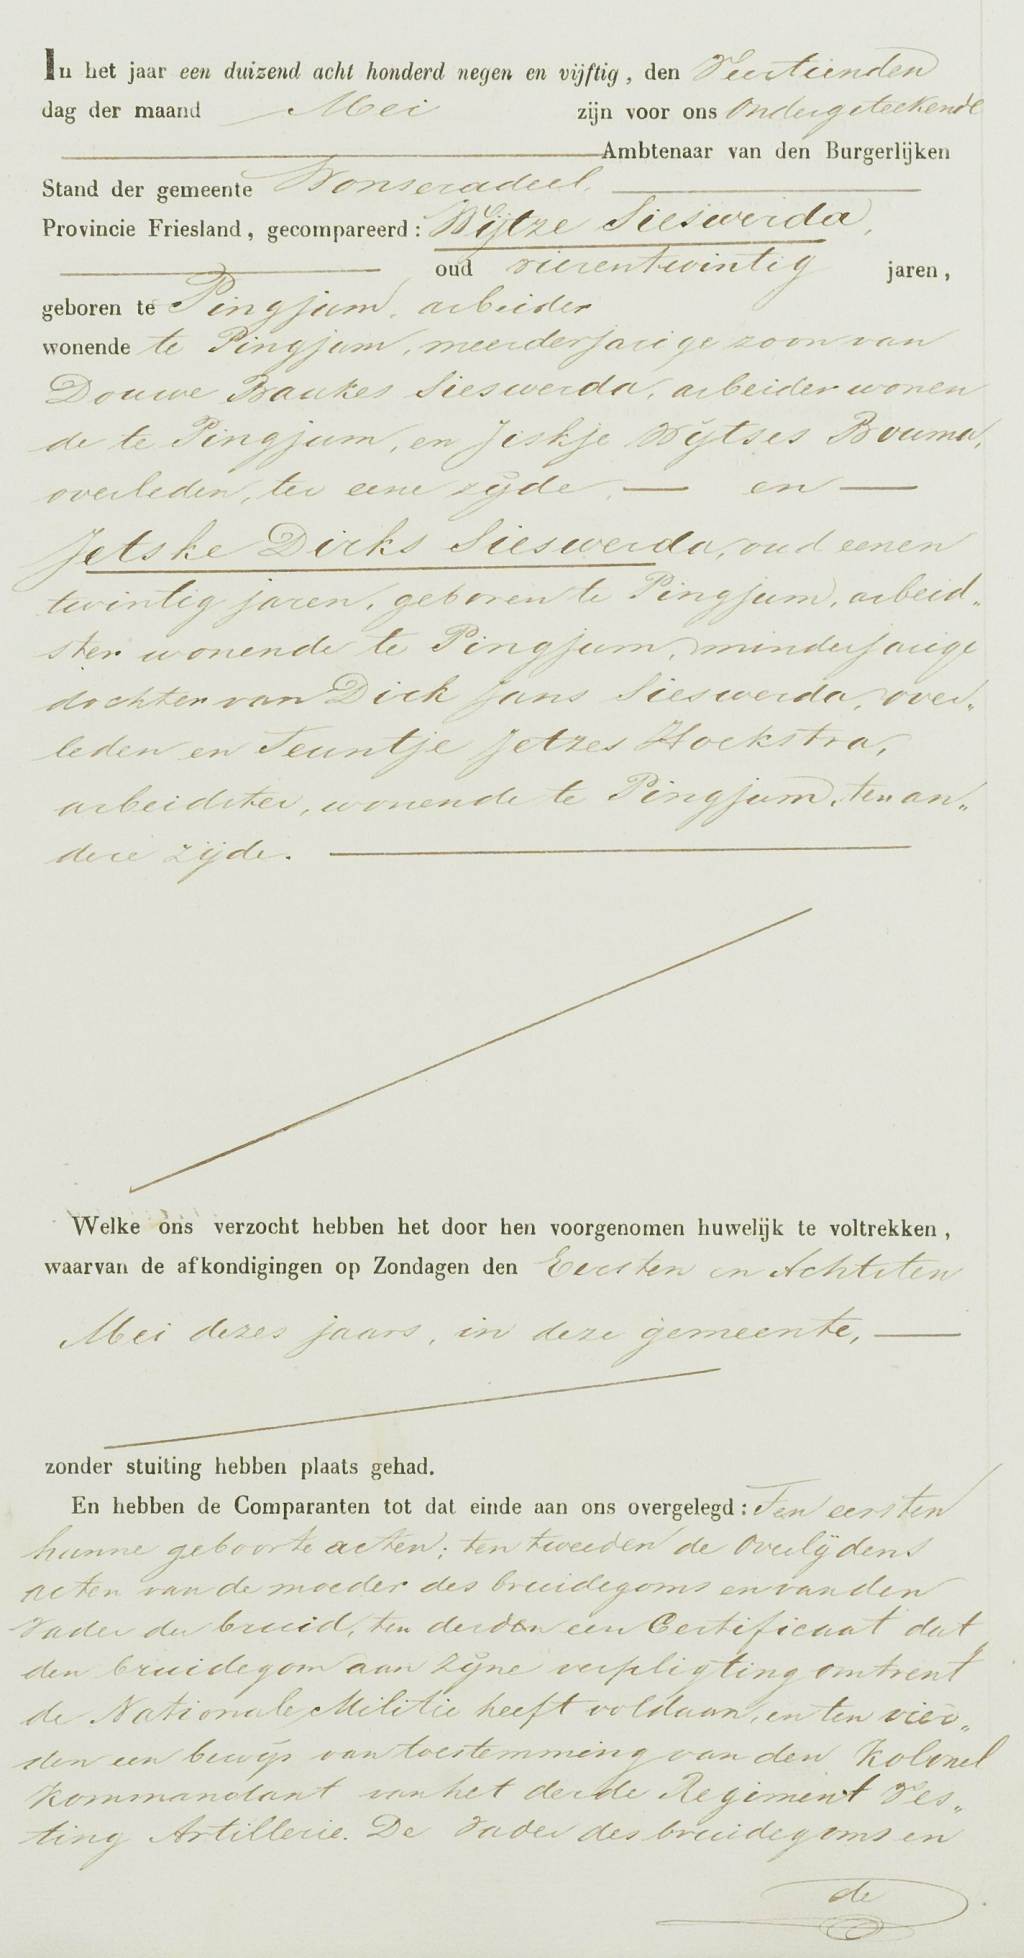 In het jaar een duizend acht honderd negen en vijftig, den Veertienden
dag der maand Mei zijn voor ons Ondergeteekende
Ambtenaar van den Burgerlijken
Stand der gemeente Wonseradeel,
Provincie Friesland, gecompareerd: Wijtze Sieswerda,
oud vierentwintig jaren,
geboren te Pingjum, arbeider
wonende te Pingjum, meerderjarige zoon van
Douwe Baukes Sieswerda, arbeider wonen
de te Pingjum, en Jiskje Wijtses Bouma,
overleden, ter eene zijde, — en —
Jetske Dirks Sieswerda, oud eenen
twintig jaren, geboren te Pingjum, arbeid„
ster wonende te Pingjum, minderjarige
dochter van Dirk Jans Sieswerda, over„
leden en Teuntje Jetzes Hoekstra,
arbeidster, wonende te Pingjum, ten an„
dere zijde.
Welke ons verzocht hebben het door hen voorgenomen huwelijk te voltrekken,
waarvan de afkondigingen op Zondagen den Eersten en Achtsten
Mei dezes jaars, in deze gemeente,
zonder stuiting hebben plaats gehad.
En hebben de Comparanten tot dat einde aan ons overgelegd: Ten eersten
hunne geboorte acten; ten tweeden de Overlijdens
acten van de moeder des bruidegoms en van den
Vader der bruid, ten derden een Certificaat dat
den bruidegom aan zijne verpligting omtrent
de Nationale Militie heeft voldaan, en ten vier„
den een bewijs van toestemming van den Kolonel
Kommandant van het derde Regiment Ves„
ting Artillerie. De Vader des bruidegoms en
de